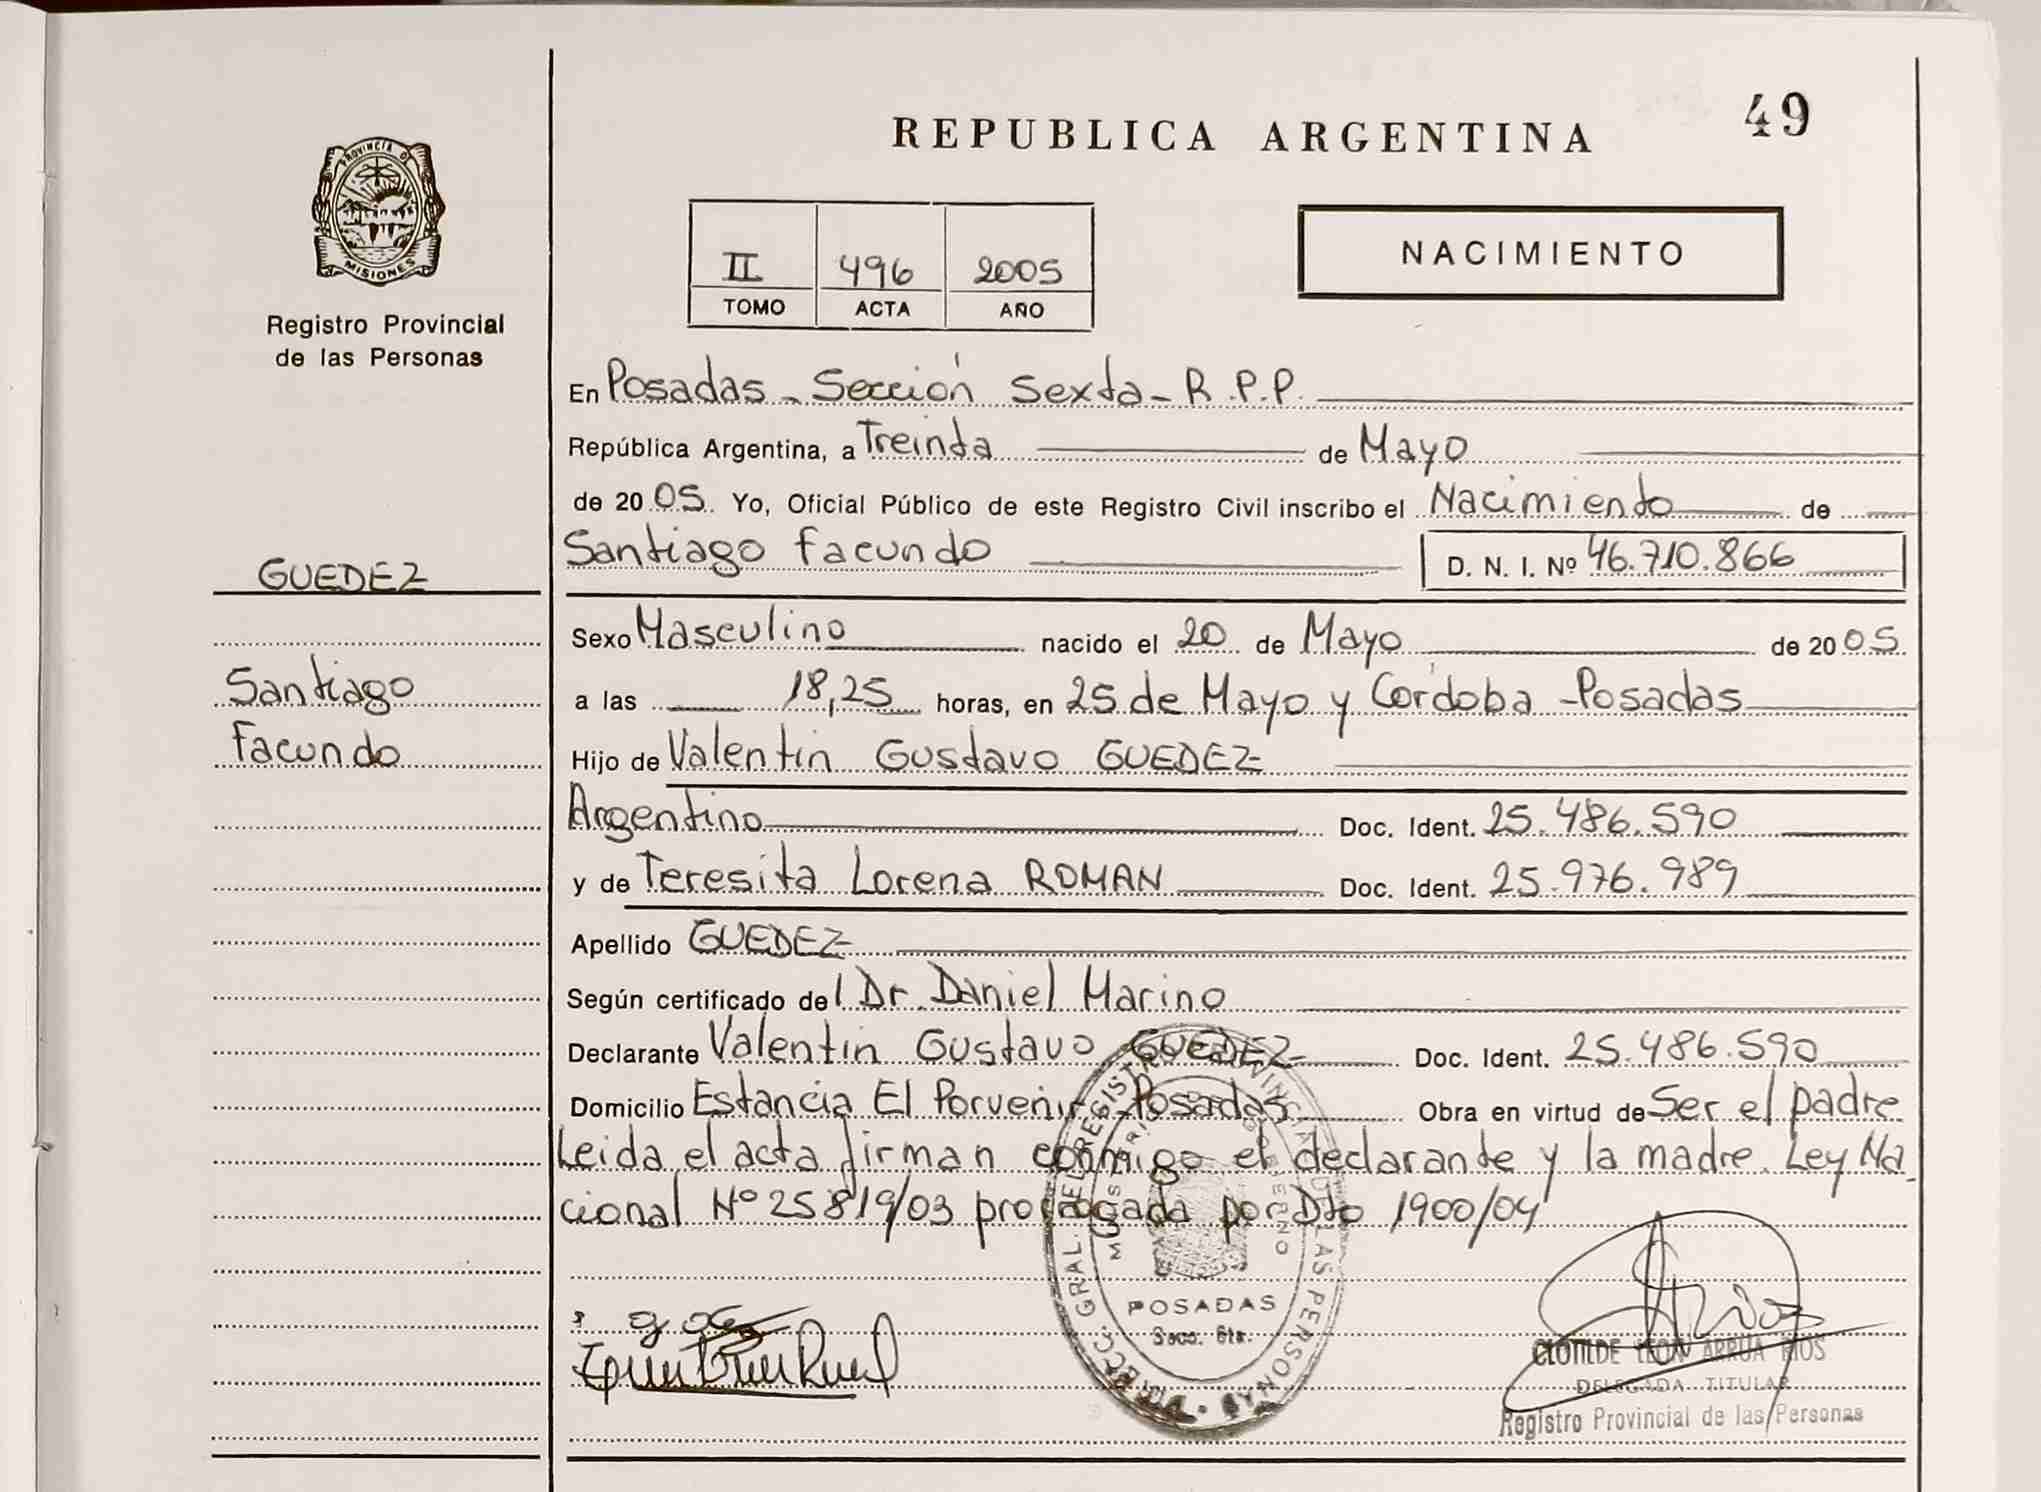 REPUBLICA ARGENTINA
49
PROVINCIA D
MISIONES
Registro Provincial
de las Personas
II 496 2005
TOMO ACTA AÑO
NACIMIENTO
En Posadas - Sección Sexta - R.P.P.
República Argentina, a Treinta de Mayo
de 2005. Yo, Oficial Público de este Registro Civil inscribo el Nacimiento de
Santiago Facundo D. N. I. Nº 46.710.866
GUEDEZ
Santiago
Facundo
Sexo Masculino nacido el 20 de Mayo de 2005.
a las 18,25 horas, en 25 de Mayo y Córdoba - Posadas
Hijo de Valentin Gustavo GUEDEZ
Argentino Doc. Ident. 25.486.590
y de Teresita Lorena ROMAN Doc. Ident. 25.976.989
Apellido GUEDEZ
Según certificado del Dr. Daniel Marino
Declarante Valentin Gustavo GUEDEZ Doc. Ident. 25.486.590
Domicilio Estancia El Porvenir - Posadas Obra en virtud de Ser el padre
Leida el acta firman conmigo el declarante y la madre. Ley Na
cional Nº 25819/03 prorrogada por Dto 1900/04
DIRECC. GRAL. DEL REGISTRO PROVINCIAL DE LAS PERSONAS
MINISTERIO GOBIERNO
POSADAS
Secc. 6ta.
CLOTILDE LEON ARRUA RIOS
DELEGADA TITULAR
Registro Provincial de las Personas